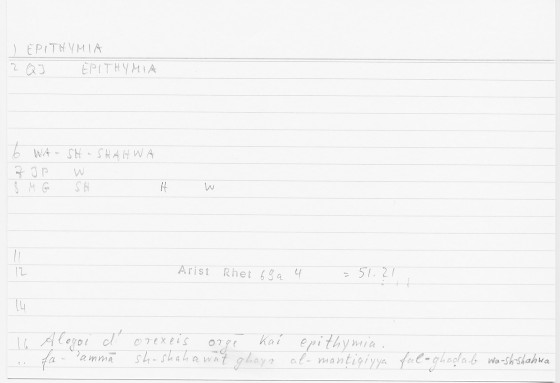 1 EPITHYMIA
2 QJ EPITHYMIA
6 WA-SH-SHAHWA
7 JP W
8 MG SH H W
11
12 Arist Rhet 69a 4 = 51.21
14
16 Alogoi d' orexeis orgē kai epithymia.
.. fa-'ammā sh-shahawāt ghayr al-manṭiqiyya fal-ghaḍab wa-sh-shahwa